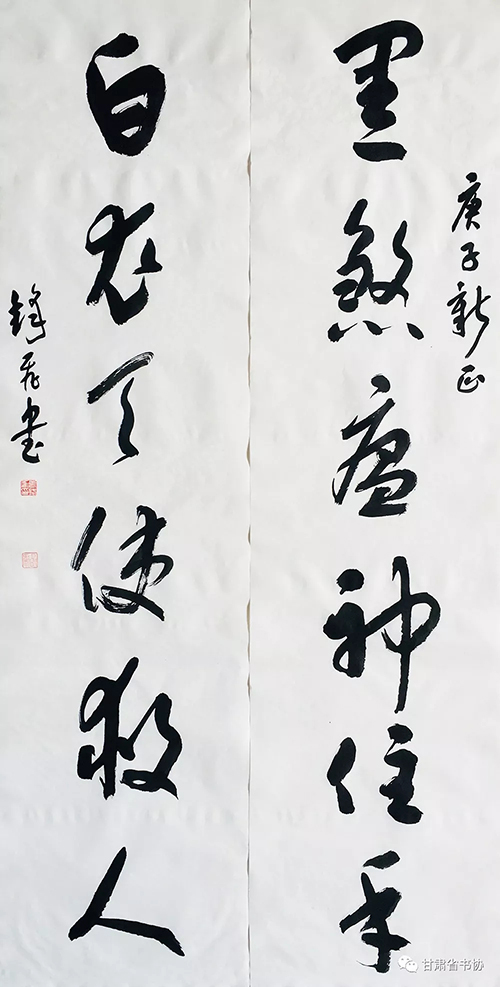 庚子新正
黑煞瘟神住手
白衣天使救人
锋飛书
甘肃省书协